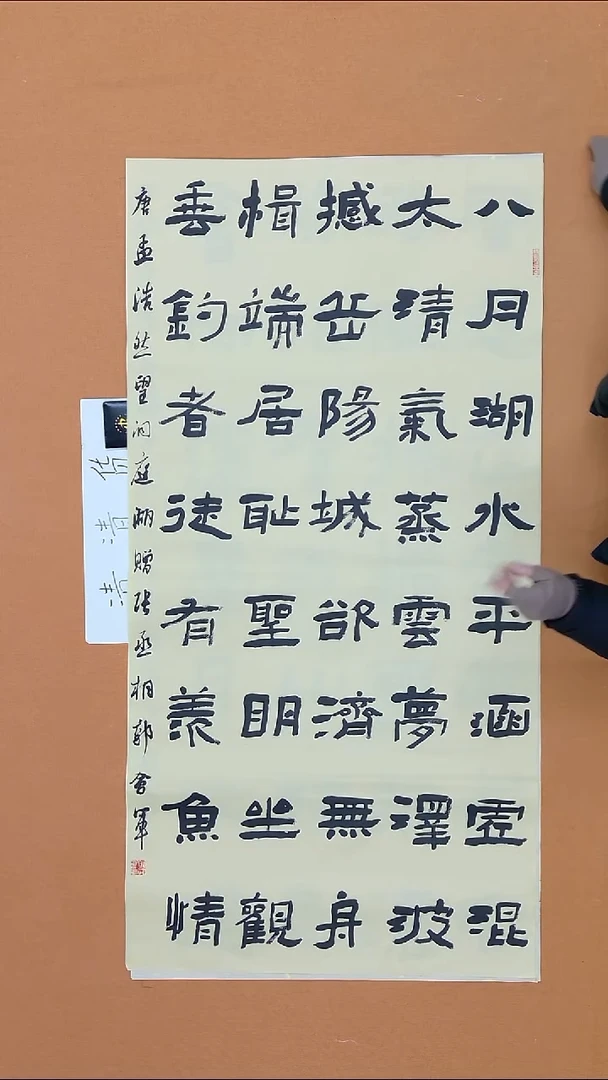 八月湖水平涵虛混
太清氣蒸雲夢澤波
撼岳陽城欲濟無舟
楫端居耻聖明坐觀
垂釣者徒有羨魚情
唐孟浩然望洞庭湖贈張丞相郭會軍